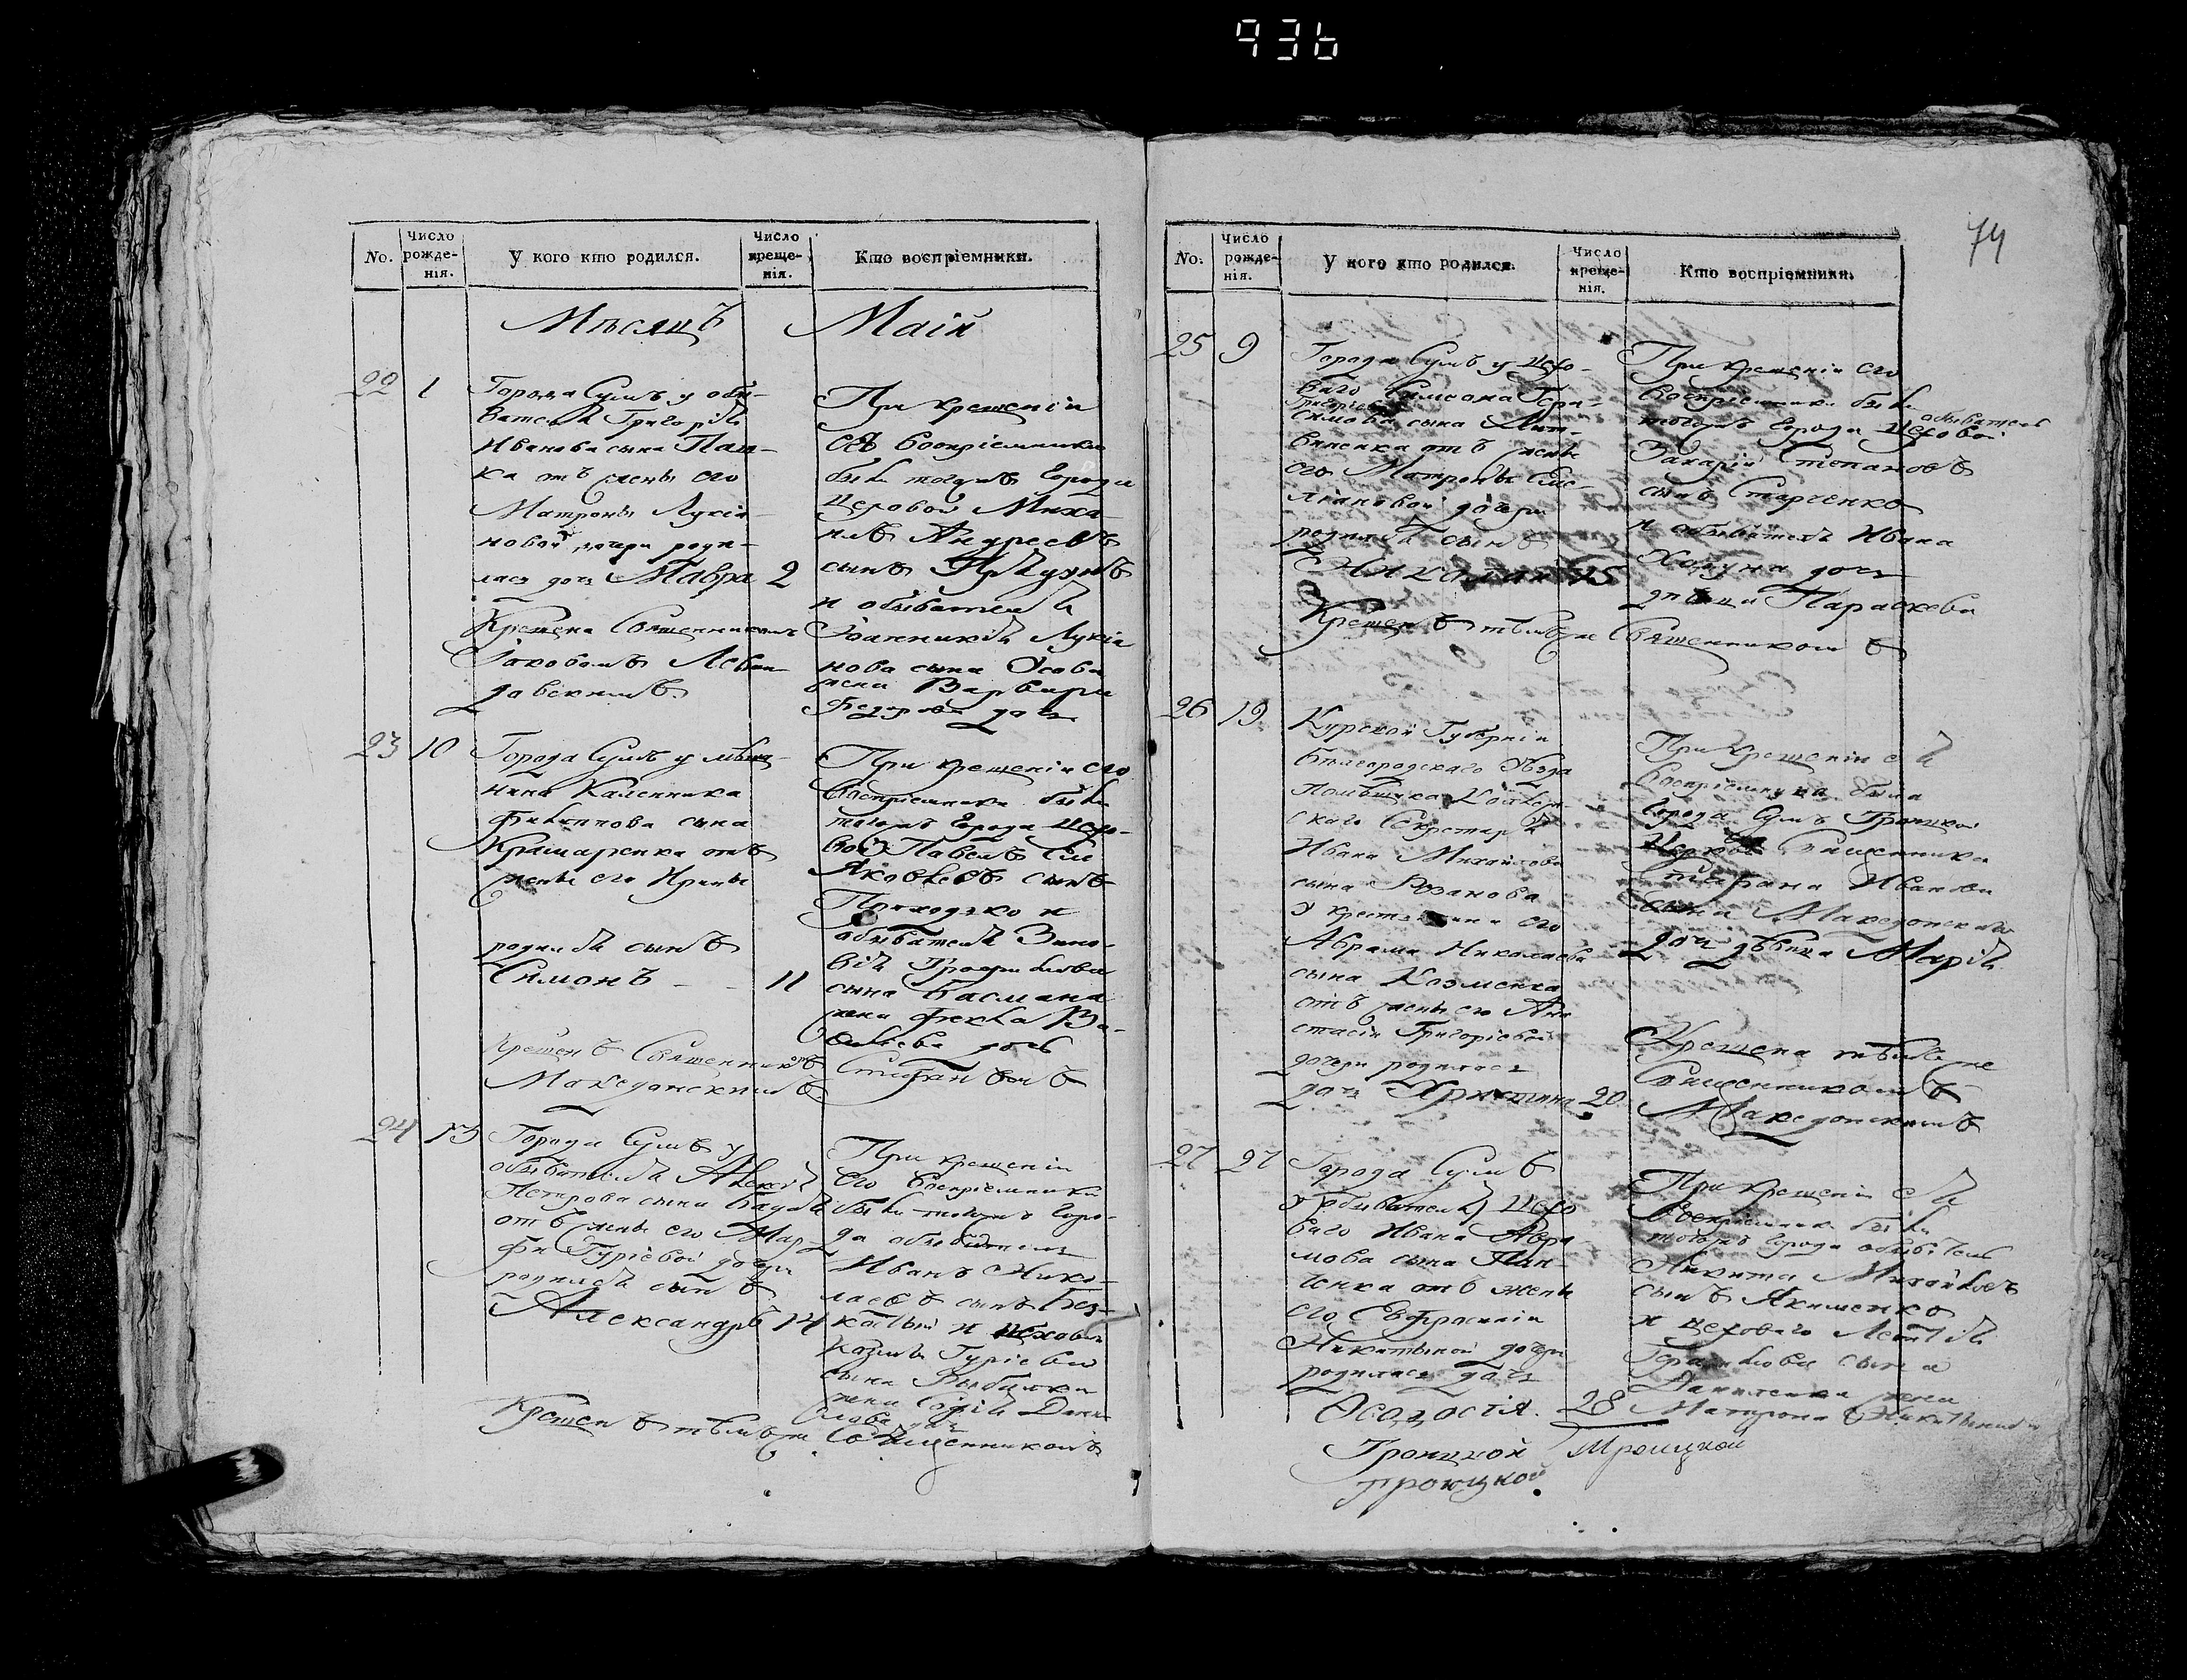 936
74
No.
Число рожде-нія.
У кого кто родился.
Число креще-нія.
Кто воспріемники.
Мѣсяцъ Маій
22 1
Города Сумъ у обы-
вателя Григорія
Иванова сына Пан-
ка отъ жены его
Матроны Лукія-
новой дочери роди-
лась дочь Мавра 2
Крещена Священникомъ
Іаковомъ
При крещеніи
ея воспріемники
были тогожъ города
цеховой Миха-
илъ Андреевъ
сынъ
и обывателя
Іоанникія Лукія
нова сына
жена Варвара
Федорова дочь
23 10
Города Сумъ у мѣща-
нина Каленника
Филиппова сына
Крамаренка отъ
жены его Ирины
родился сынъ
Симонъ - - 11
Крещенъ Священникомъ
Македонскимъ
При крещеніи его
воспріемники были
тогожъ города цехо-
вой Павелъ
Яковлевъ сынъ
Приходько и
обывателя Зино-
вія Трофимова
сына Басмана
жена Фекла Ва-
сильева дочь
Стефаномъ
24 13
Города Сумъ у
обывателя Алексѣя
Петрова сына
отъ жены его Мар-
фы Гуріевой дочери
родился сынъ
Александръ 14
Крещенъ тѣмъ же Священникомъ
При крещеніи
его воспріемники
были тогожъ горо-
да обыватель
Иванъ Нико-
лаевъ сынъ Без-
и цеховаго
Козмы Гуріева
сына Рыбалки
жена Софія Дани-
лова дочь
No.
Число рожде-нія.
У кого кто родился.
Число креще-нія.
Кто воспріемники.
25 9
Города Сумъ у цехо-
ваго Симеона Гера-
симова сына
отъ жены
его Матроны Еме-
ліановой дочери
родился сынъ
Николай 15
Крещенъ тѣмъ же Священникомъ
При крещеніи его
воспріемники были
тогожъ города цеховой обыватель
Захарій Степановъ
сынъ Старченко
и обывателя Ивана
Хоруна дочь
дѣвица Параскева
26 19
Курской Губерніи
Бѣлгородскаго Уѣзда
помѣщика
Секретаря
Ивана Михайлова
сына Розанова
у крестьянина его
Абрама Николаева
сына Козменка
отъ жены его Ана
стасіи Григоріевой
дочери родилась
дочь Христина 20
При крещеніи ея
воспріемница была
города Сумъ Троицкой
Церкви Священника
Стефана Иванова
сына Македонскаго
дочь дѣвица Марія
Крещена тѣмъ же
Священникомъ
Македонскимъ
27 27
Города Сумъ
у обывателя цехо
ваго Ивана Абра-
мова сына Пан-
ченка отъ жены
его Евфросиніи
Никитиной дочери
родилась дочь
Ѳеодосія. 28
При крещеніи ея
воспріемники были
тогожъ города обыватель
Никита Михайловъ
сынъ Якименко
и цеховаго Леонтія
Герасимова сына
Даниленка жена
Матрона
Троицкой Троицкой
троицкой